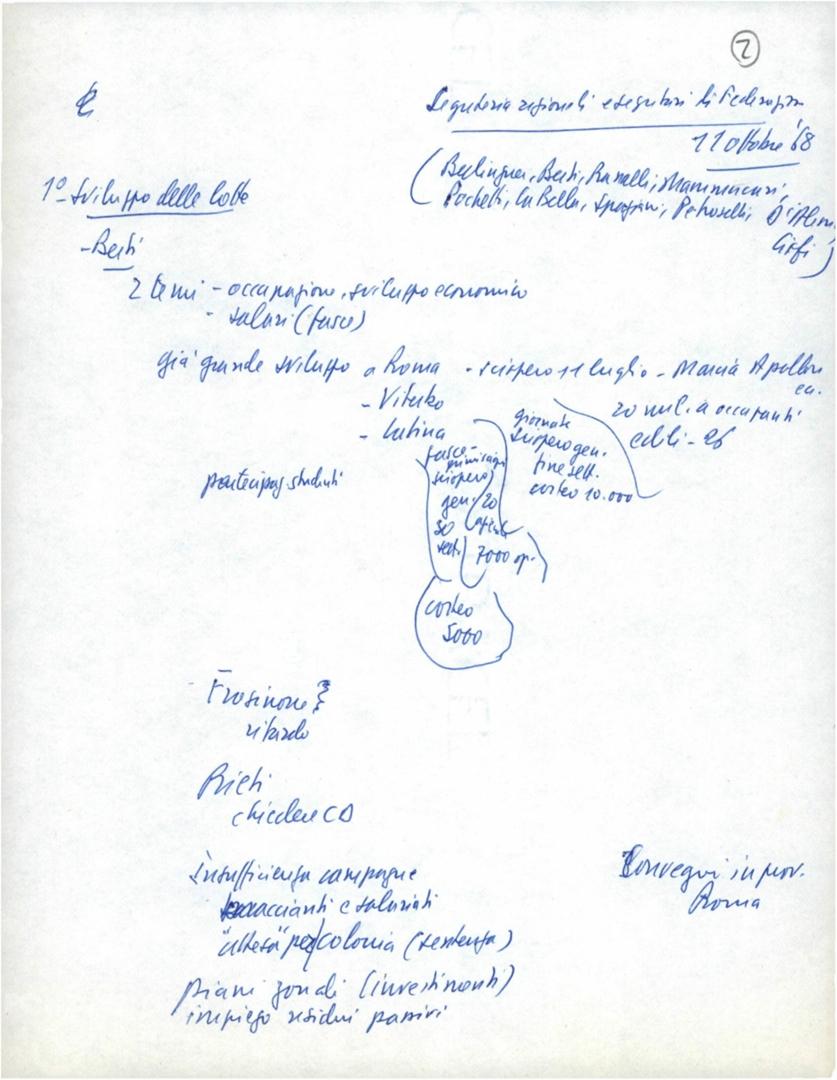 2
Segreteria regionali e segretari di Federazion
11 ottobre '68
(Berlinguer, Berti, Ranalli, Mammucari,
Pochetti, La Bella, Spaziani, Petroselli, D'Alem
Cirfi)
1º - Sviluppo delle lotte
- Berti
2 temi - occupazione, sviluppo economico
- salari (fasce)
già grande sviluppo a Roma - sciopero 11 luglio - Marcia Apollon
- Viterbo
20 mila occupanti
- Latina
edili -
giornate
sciopero gen.
fine sett.
corteo 10.000
partecipaz. studenti
fasce -
sciopero
gen. 20
50
7000 op.
corteo
5000
Frosinone
ritardo
Rieti
chiedere CD
Insufficienza campagne
braccianti e salariati
"attesa" per colonia (sentenza)
piani zonali (investimenti)
impiego residui passivi
Convegni in prov.
Roma